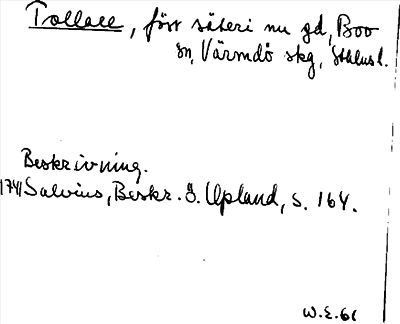 Tollare, förr säteri nu gd, Boo
sn, Värmdö skg, Sthlms l.
Beskrivning.
1741 Salvius, Beskr. ö. Upland, s. 164.
W.E. 61